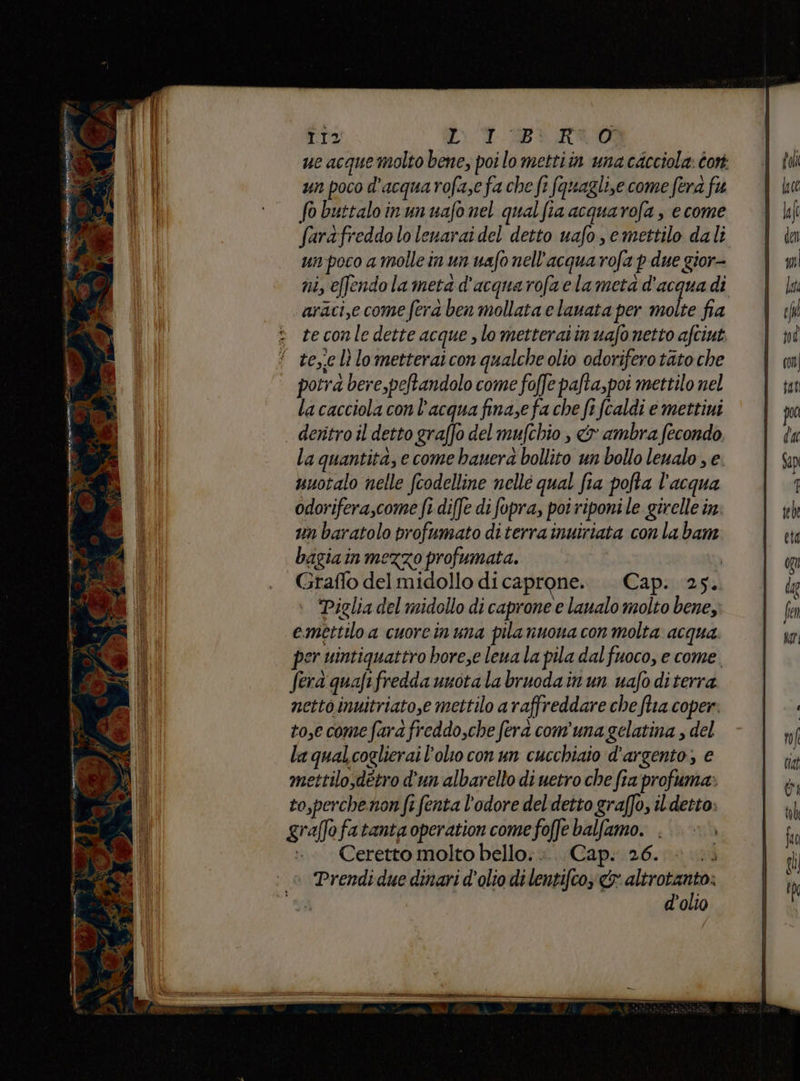 112 L I B R O
ue acque molto bene, poi lo metti in una cacciola: con
un poco d'acqua rosa, e fa che si squagli, e come serà fu
so buttalo in un uaso nel qual sia acqua rosa, e come
sarà freddo lo leuarai del detto uaso, e mettilo da lì
un poco a molle in un uaso nell'acqua rosa p due gior-
ni, essendo la metà d'acqua rosa e la metà d'acqua di
aràci, e come serà ben mollata e lauata per molte fia
te con le dette acque, lo metterai in uaso netto asciut
te, e lì lo metterai con qualche olio odorifero tãto che
potrà bere, pestandolo come fosse pasta, poi mettilo nel
la cacciola con l'acqua fina, e fa che si scaldi e mettiui
dentro il detto grasso del muschio, & ambra secondo
la quantità, e come hauerà bollito un bollo leualo, e
uuotalo nelle scodelline nelle qual sia posta l'acqua
odorifera, come si disse di sopra, poi riponi le girelle in
un baratolo profumato di terra inuiriata con la bam
bagia in mezzo profumata.
Grasso del midollo di caprone. Cap. 25.
Piglia del midollo di caprone e laualo molto bene,
e mettilo a cuore in una pila nuoua con molta acqua
per uintiquattro hore, e leua la pila dal fuoco, e come
serà quasi fredda uuota la bruoda in un uaso di terra
netto inuitriato, e mettilo a raffreddare che stia coper
to, e come sarà freddo, che serà com'una gelatina, del
la qual coglierai l'olio con un cucchiaio d'argento, e
mettilo, dẽtro d'un albarello di uetro che sia profuma
to, perche non si senta l'odore del detto grasso, il detto
grasso fa tanta operation come fosse balsamo.
Ceretto molto bello. Cap. 26.
Prendi due dinari d'olio di lentisco, & altrotanto
d'olio